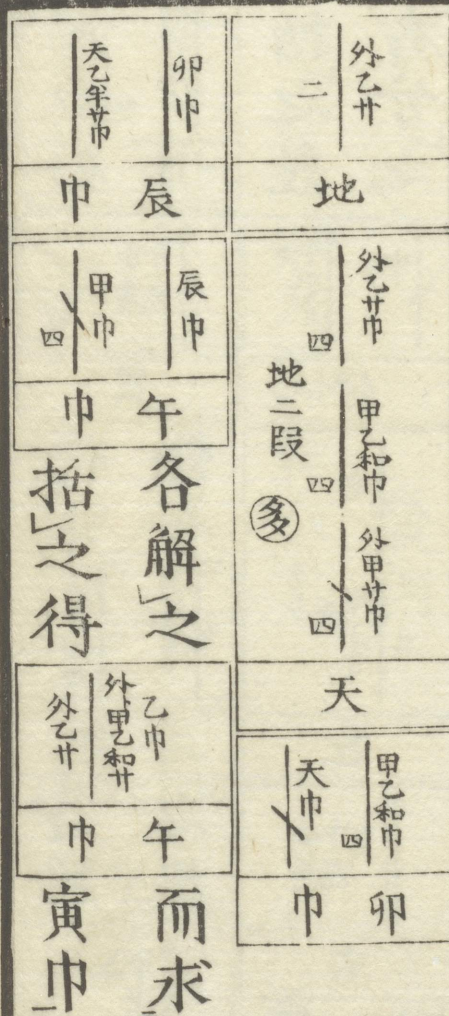 外乙廾
二
地
外乙廾巾
四
甲乙和巾
四
外甲廾巾
四
地二段
多
天
甲乙和巾
四
天巾
卯巾
卯巾
天乙半廾巾
辰巾
辰巾
甲巾
四
午巾
各解之
括之得
乙巾
外甲乙和廾
外乙廾
午巾
而求
寅巾